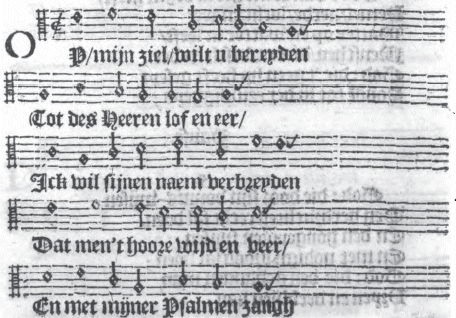 Op/mijn ziel/wilt u bereyden
Tot des Heeren lof en eer/
Ick wil sijnen naem verbreyden
Dat men't hoore wijd en veer/
En met mijner Psalmen zangh